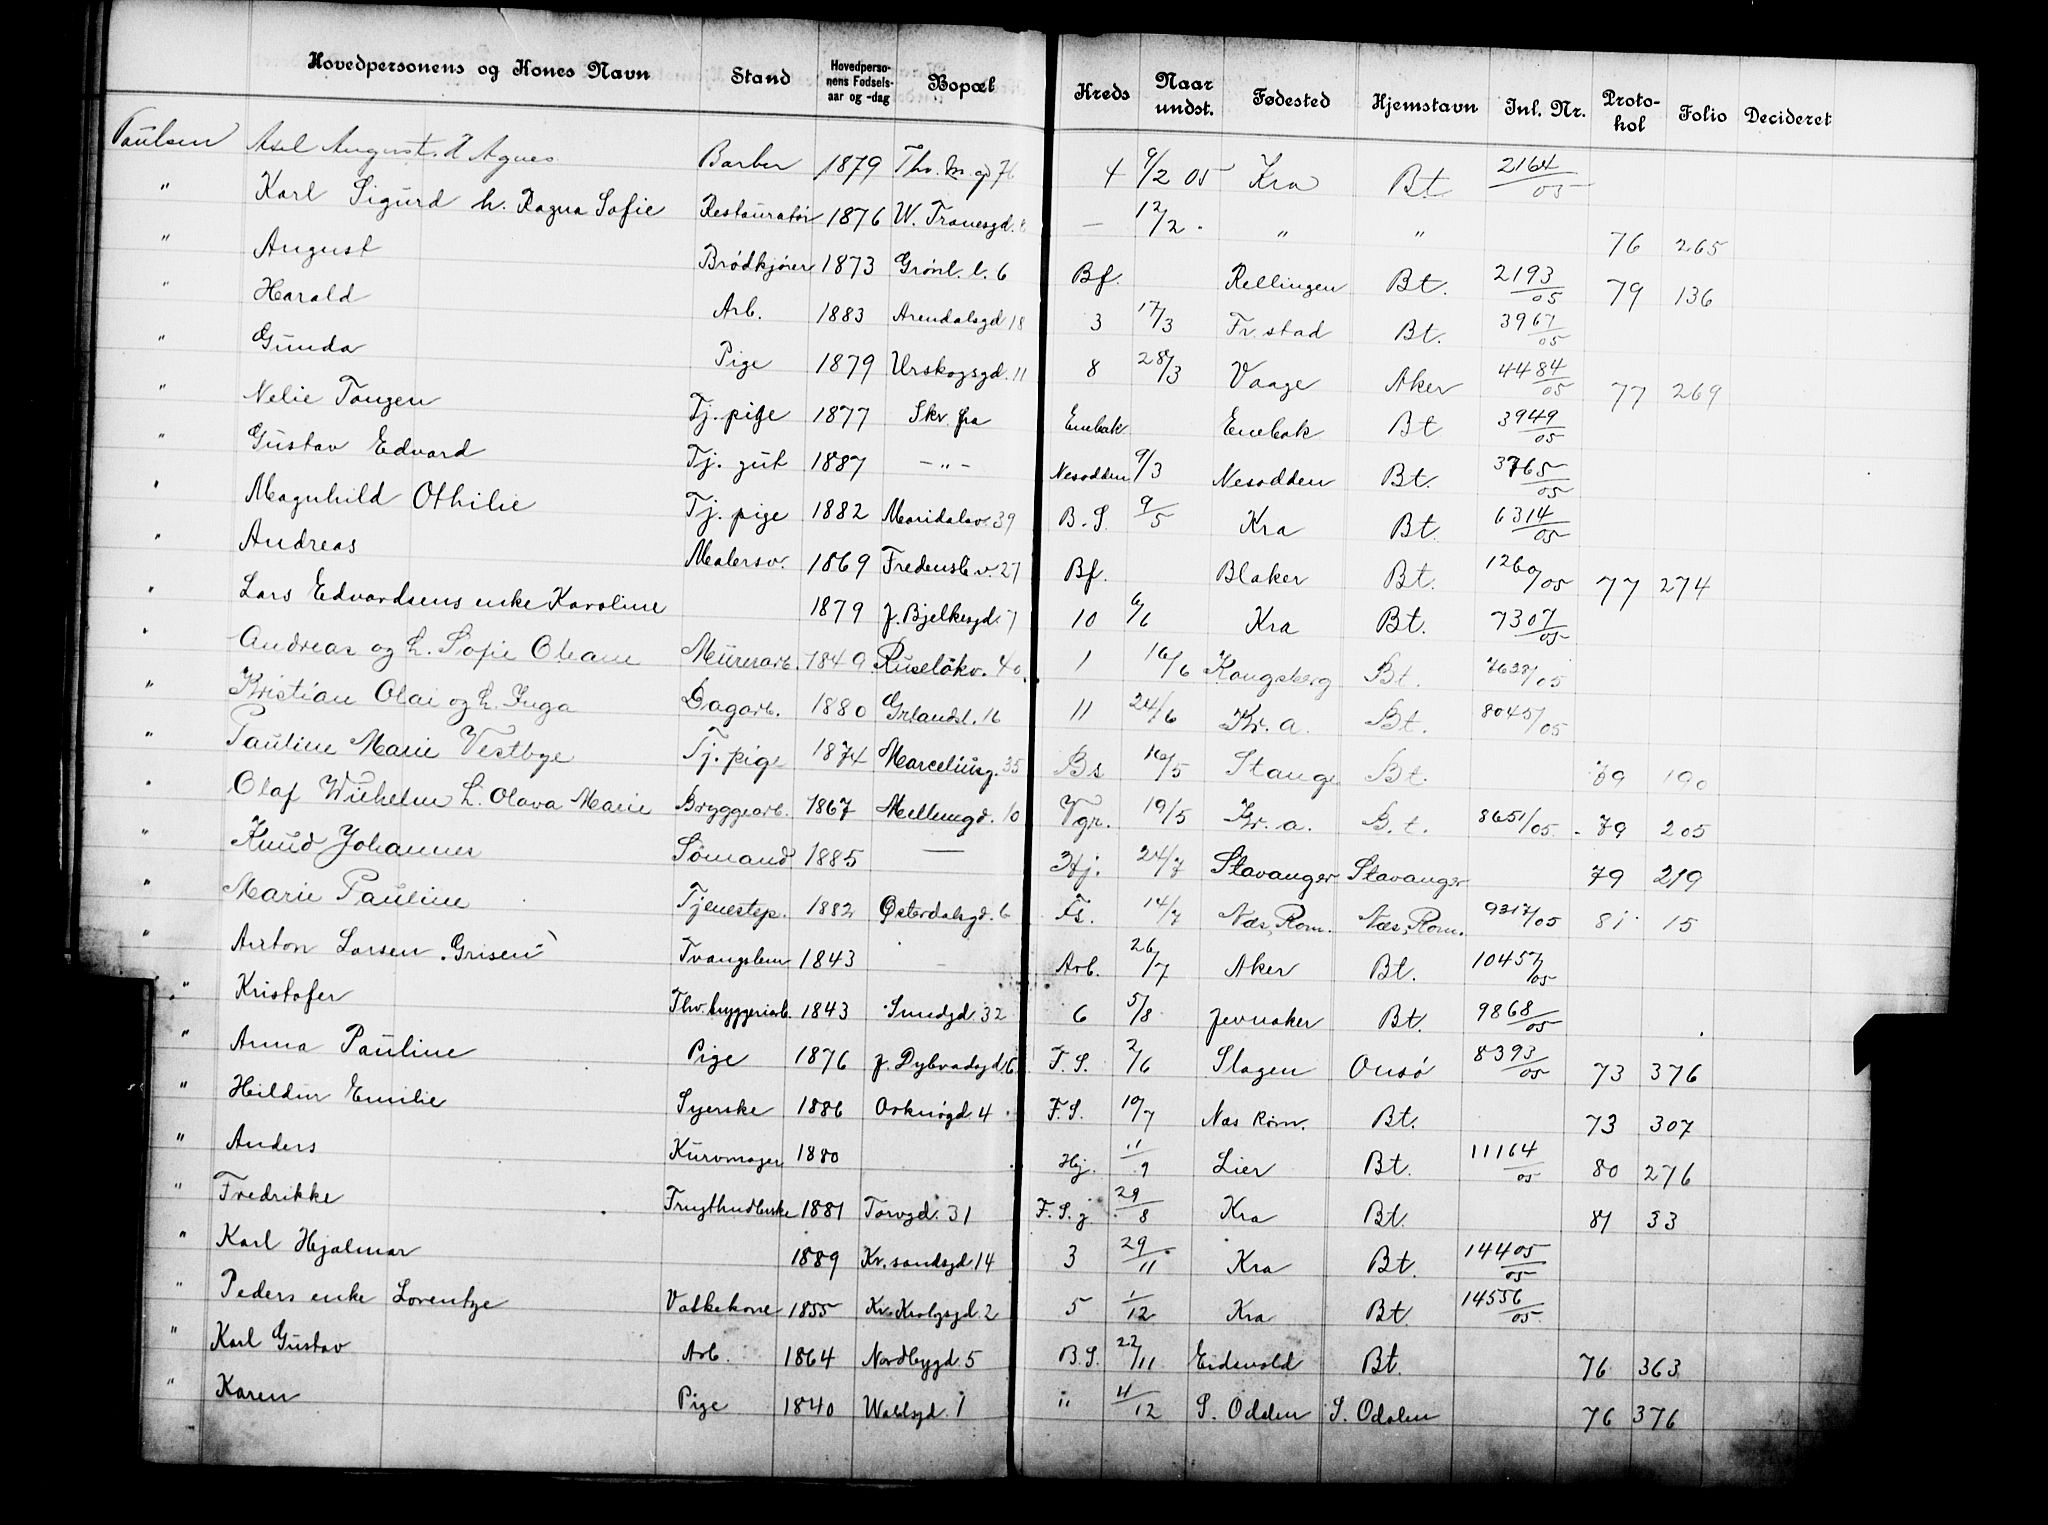 Hovedpersonens og Kones Navn Stand Hovedpersonens Fødselsaar og -dag Bopæl Kreds Naar undst. Fødested Hjemstavn Inl. Nr. Protokol Folio Decideret
Paulsen Axel August. h Agnes Barber 1879 Thv. M gd 76 4 9/2 05 Kra Bt. 2164/05
" Karl Sigurd h. Ragna Sofie Restauratør 1876 W. Tranesgd. 8 — 12/2 " " 76 265
" August Brødkjører 1873 Grönl. l. 6 Bf. Rellingen Bt. 2193/05 79 136
" Harald Arb. 1883 Arendalsgd 18 3 17/3 Fr.stad Bt. 3967/05
" Gunda Pige 1879 Urskogsgd. 11 8 28/3 Vaage Aker 4484/05 77 269
" Nelie Tangen Tj. pige 1877 Skr. fra Enebak Enebak Bt 3949/05
" Gustav Edvard Tj. gut 1887 — " — Nesodden 9/3 Nesodden Bt. 3765/05
" Magnhild Othilie Tj. pige 1882 Maridalsv. 39 B. S. 9/5 Kra Bt. 6314/05
" Andreas Malersv. 1869 Fredensb.v. 27 Bf. Blaker Bt. 1260/05 77 274
" Lars Edvardsens enke Karoline 1879 J. Bjelkesgd. 7 10 6/6 Kra Bt. 7307/05
" Andreas og h. Sofie Oleane Murerarb. 1849 Ruseløkv. 40 1 16/6 Kongsberg Bt. 7638/05
" Kristian Olai og h. Inga Dagarb. 1880 Grlandsl. 16 11 24/6 Kr.a. Bt. 8045/05
" Pauline Marie Vestbye Tj. pige 1874 Marceliusg. 35 Bs 16/5 Stange Bt. 79 190
" Olaf Wilhelm h. Olava Marie Bryggearb. 1867 Mellemgd. 10 Vgr. 19/5 Kr.a. B.t. 8651/05 79 205
" Knud Johannes Sömand 1885 — Hj. 24/7 Stavanger Stavanger 79 219
" Marie Pauline Tjenestep. 1882 Østerdalsgd. 6 Fs. 14/7 Næs, Rom. Næs, Rom. 9317/05 81 15
" Anton Larsen "Grisen" Tvangslem 1843 — Arb. 26/7 Aker Bt. 10457/05
" Kristofer Thv. bryggeriarb. 1843 Smedgd. 32 6 5/8 Jevnaker Bt. 9868/05
" Anna Pauline Pige 1876 J. Dybvadsgd. 6 F. S. 2/6 Slagen Onsö 8393/05 73 376
" Hildur Emilie Syerske 1886 Orknögd. 4 F. S. 19/7 Næs Rom. Bt. 73 307
" Anders Kurvmager 1880 Hj. 11/9 Lier Bt. 11164/05 80 276
" Fredrikke Frugthandlerske 1881 Torvgd. 31 F. S. j. 29/8 Kra Bt. 81 33
" Karl Hjalmar 1889 Kr.sandsgd 14 3 29/11 Kra Bt. 14405/05
" Peders enke Lorentze Vaskekone 1855 5 1/12 Kra Bt. 14556/05
" Karl Gustav Arb. 1864 Nordbygd. 5 B. S. 22/11 Eidsvold Bt. 76 363
" Karen Pige 1840 Wahlsgd. 1 " 4/12 S. Odalen S. Odalen 76 376